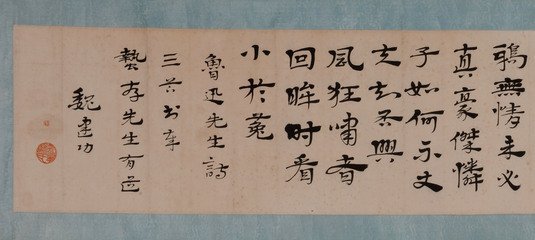 無情未必
真豪傑憐
子如何不丈
夫知否興
風狂嘯者
回眸时看
小於菟
魯迅先生詩
三首書奉
先生有道
魏建功